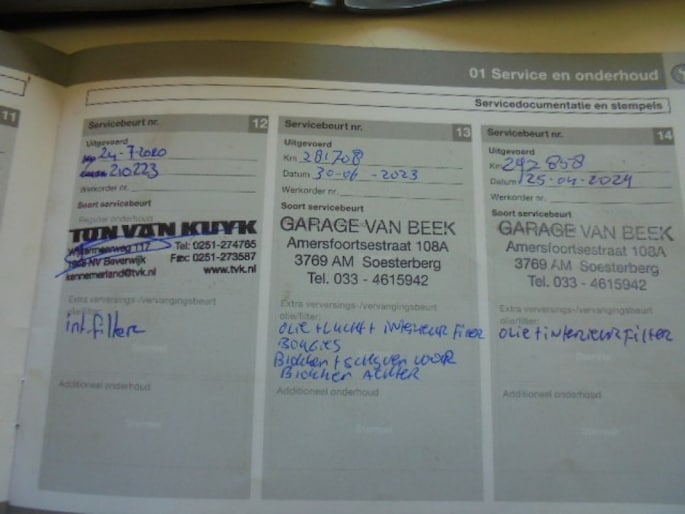 01 Service en onderhoud
Servicedocumentatie en stempels
11
Servicebeurt nr. 12
Uitgevoerd
24-7-2020
210223
Werkorder nr.
Soort servicebeurt
Regulier onderhoud
TON VAN KUYK
Wijkermeerweg 117 Tel: 0251-274765
NV Beverwijk Fax: 0251-273587
kennemerland@tvk.nl www.tvk.nl
Extra verversings-/vervangingsbeurt
olie/filter:
int.filter
Additioneel onderhoud
Stempel
Servicebeurt nr. 13
Uitgevoerd
Km 281708
Datum 30-06-2023
Werkorder nr.
Soort servicebeurt
GARAGE VAN BEEK
Amersfoortsestraat 108A
3769 AM Soesterberg
Tel. 033 - 4615942
Extra verversings-/vervangingsbeurt
olie/filter:
olie + lucht + interieur filter
Bougies
Blokken + schijven voor
Blokken Achter
Additioneel onderhoud
Stempel
Servicebeurt nr. 14
Uitgevoerd
Km 292858
Datum 25-04-2024
Werkorder nr.
Soort servicebeurt
GARAGE VAN BEEK
Amersfoortsestraat 108A
3769 AM Soesterberg
Tel. 033 - 4615942
Extra verversings-/vervangingsbeurt
olie/filter:
olie + interieur filter
Stempel
Additioneel onderhoud
Stempel